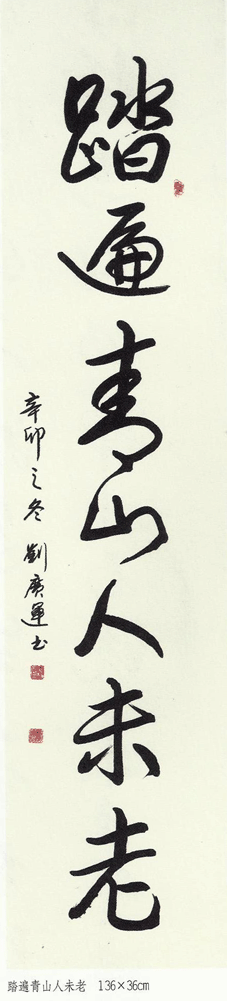 踏遍青山人未老
辛卯之冬 劉廣運书
踏遍青山人未老 136×36cm